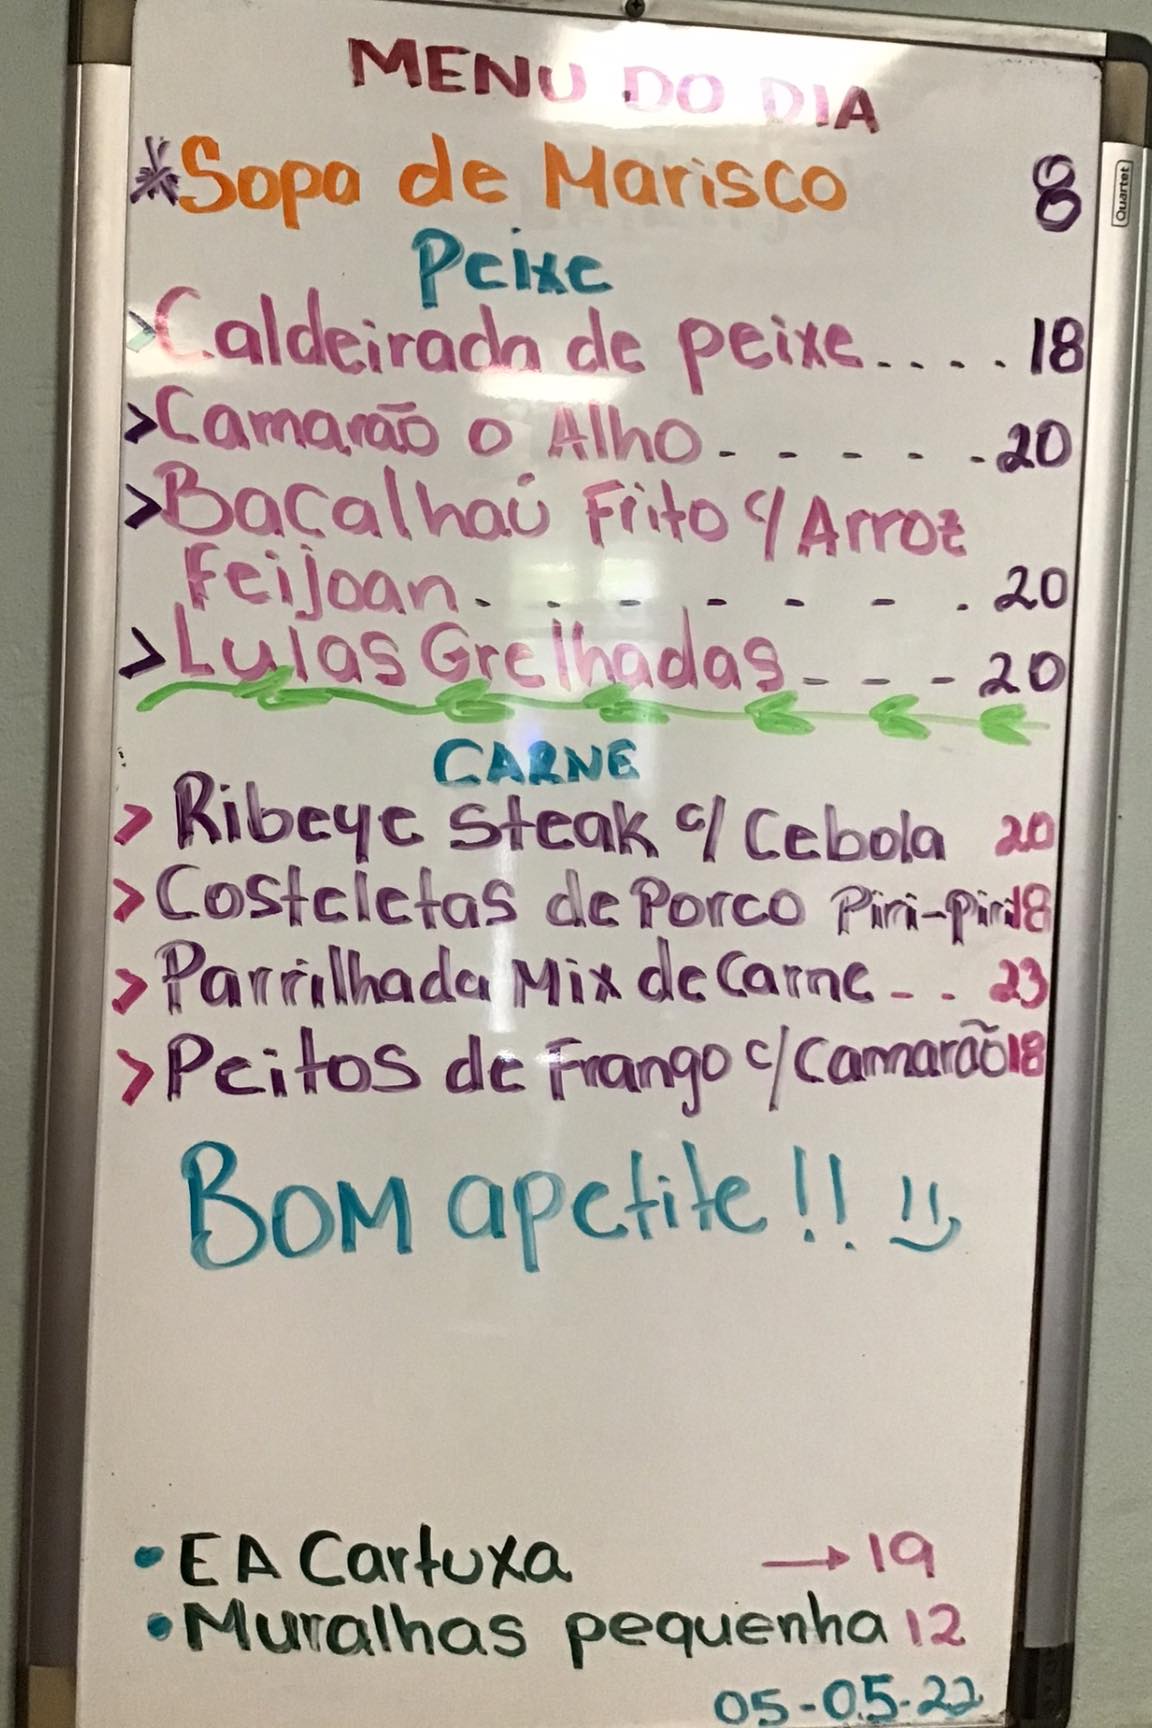 MENU DO DIA
*Sopa de Marisco 8
Quartet
Peixe
>Caldeirada de peixe.... 18
>Camarão o Alho - - - - - 20
>Bacalhaú Frito c/ Arroz
Feijoan. . - - - - . 20
>Lulas Grelhadas - - - 20
CARNE
> Ribeye Steak c/ Cebola 20
> Costeletas de Porco Piri-piri 18
> Parrilhada Mix de Carne - - 23
> Peitos de Frango c/ Camarão 18
Bom apetite!!
• EA Cartuxa → 19
• Muralhas pequenha 12
05-05-22